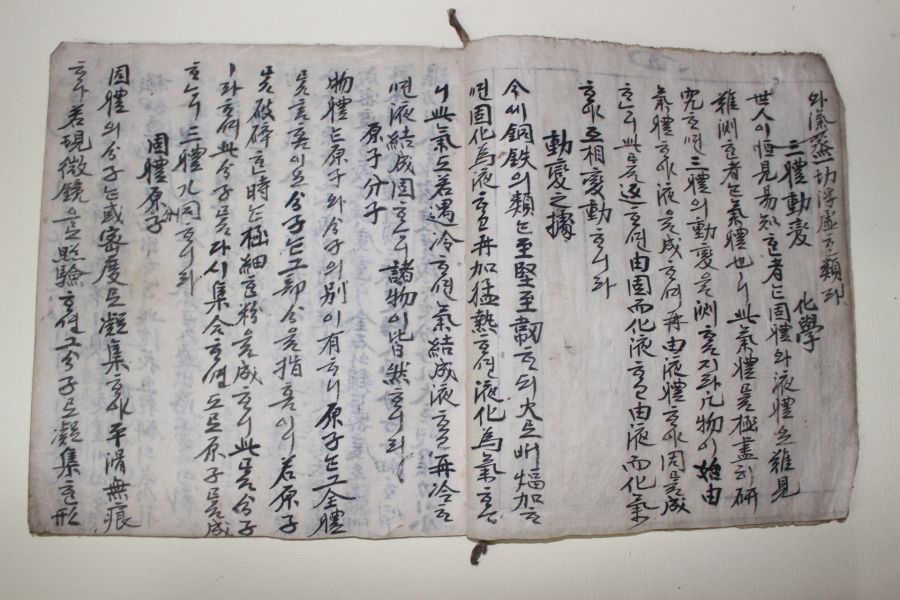 와 凝蒸一切浮虛ᄒᆞᆫ 類라
三體動變 化學
世人이 恒見易知ᄒᆞᄂᆞᆫ 者ᄂᆞᆫ 固體와 液體오 難見
難測ᄒᆞᆫ 者ᄂᆞᆫ 氣體也ㅣ니 此氣體를 極盡히 硏
究ᄒᆞ면 三體의 動變을 測ᄒᆞᆯ지라 凡物이 始由
氣體ᄒᆞ야 液을 成ᄒᆞ며 再由液體ᄒᆞ야 固를 成
ᄒᆞᄂᆞ니 此를 逆ᄒᆞ면 由固而化液ᄒᆞ고 由液而化氣
ᄒᆞ야 互相變動ᄒᆞ니라
動變之據
今世銅鉄의 類ᄂᆞᆫ 至堅至韌ᄒᆞ되 大로 煏加ᄒᆞ
면 固化爲液ᄒᆞ고 再加猛熱ᄒᆞ면 液化爲氣ᄒᆞᄂᆞ
니 此氣도 若遇冷ᄒᆞ면 氣結成液ᄒᆞ고 再冷ᄒᆞ
면 液結成固ᄒᆞᄂᆞ니 諸物이 皆然ᄒᆞ니라
原子分子
物體ᄂᆞᆫ 原子와 分子의 別이 有ᄒᆞ니 原子ᄂᆞᆫ 그 全體
를 言홈이오 分子ᄂᆞᆫ 그 部分을 指홈이니 若原子
를 破碎ᄒᆞᆫ 時ᄂᆞᆫ 極細ᄒᆞᆫ 粉을 成ᄒᆞ니 此를 分子
ㅣ라 ᄒᆞ며 此分子를 다시 集合ᄒᆞ면 도로 原子를 成
ᄒᆞᄂᆞ니 三體가 同ᄒᆞ니라
固體原子
固體의 分子ᄂᆞᆫ 或 密度로 凝集ᄒᆞ야 平滑無痕
ᄒᆞ나 若顯微鏡으로 照驗ᄒᆞ면 그 分子로 凝集ᄒᆞᆫ 形